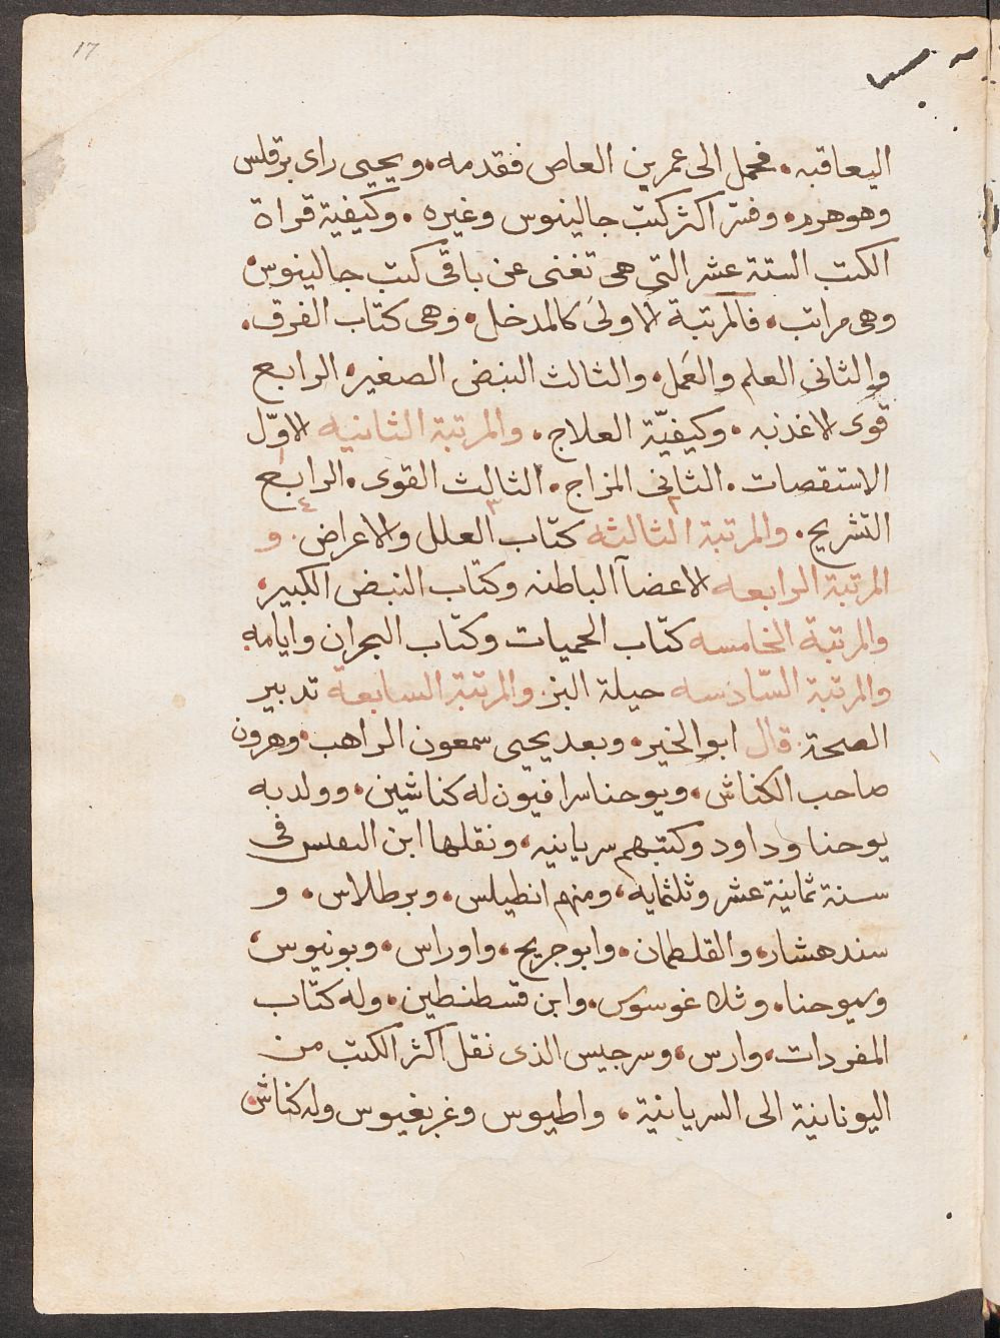 17
اليعاقبه. فحمل الى عمربن العاص فقدمه. ويحيى راى برقلس
وهو هرم. وفسر اكثر كتب جالينوس وغيره. وكيفية قراة
الكتب الستة عشر التى هى تغنى عن باقى كتب جالينوس
وهى مراتب. فالمرتبة الاولى كالمدخل. وهى كتاب الفرق.
والثانى العلم والعمل. والثالث النبض الصغير. الرابع
قوى الاغذيه. وكيفيّة العلاج. والمرتبة الثانيه الاوّل
الاستقصات. الثانى المزاج. الثالث القوى. الرابع
التشريح. والمرتبة الثالثه كتاب العلل والاعراض. و
المرتبة الرابعه الاعضآ الباطنه وكتاب النبض الكبير.
والمرتبة الخامسه كتاب الحميات وكتاب البحران وايامه
والمرتبة السّادسه حيلة البرْ والمرتبة السابعة تدبير
الصحة. قال ابو الخير. وبعد يحيى سمعون الراهب. وهرون
صاحب الكناش. ويوحنا سرافيون له كناشين. وولديه
يوحنا وداود وكتبهم سريانيه. ونقلها ابن فى
سنة ثمانية عشر وثلثمايه. ومنهم انطيلس. وبرطلاس. و
سندهشار. والقلطمان. وابو جريج. واوراس. وبونيوس.
وبيوحنا. ابن قسطنطين. وله كتاب
المفردات. وارس. وسرجيس الذى نقل اكثر الكتب من
اليونانية الى السريانية. واطيوس وغريغيوس وله كناش